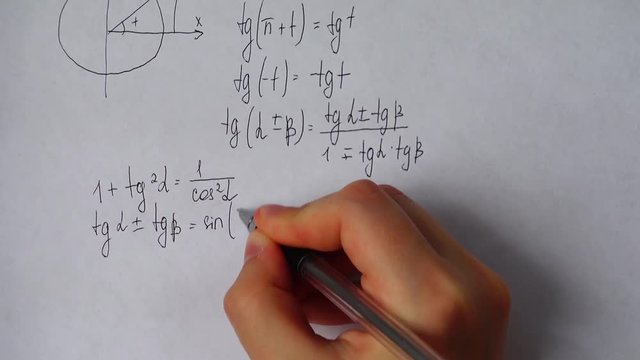 x
t
tg(π+t) = tgt
tg(-t) = -tgt
tg(α±β) = tgα±tgβ / 1∓tgα·tgβ
1+tg²α = 1 / cos²α
tgα ± tgβ = sin(